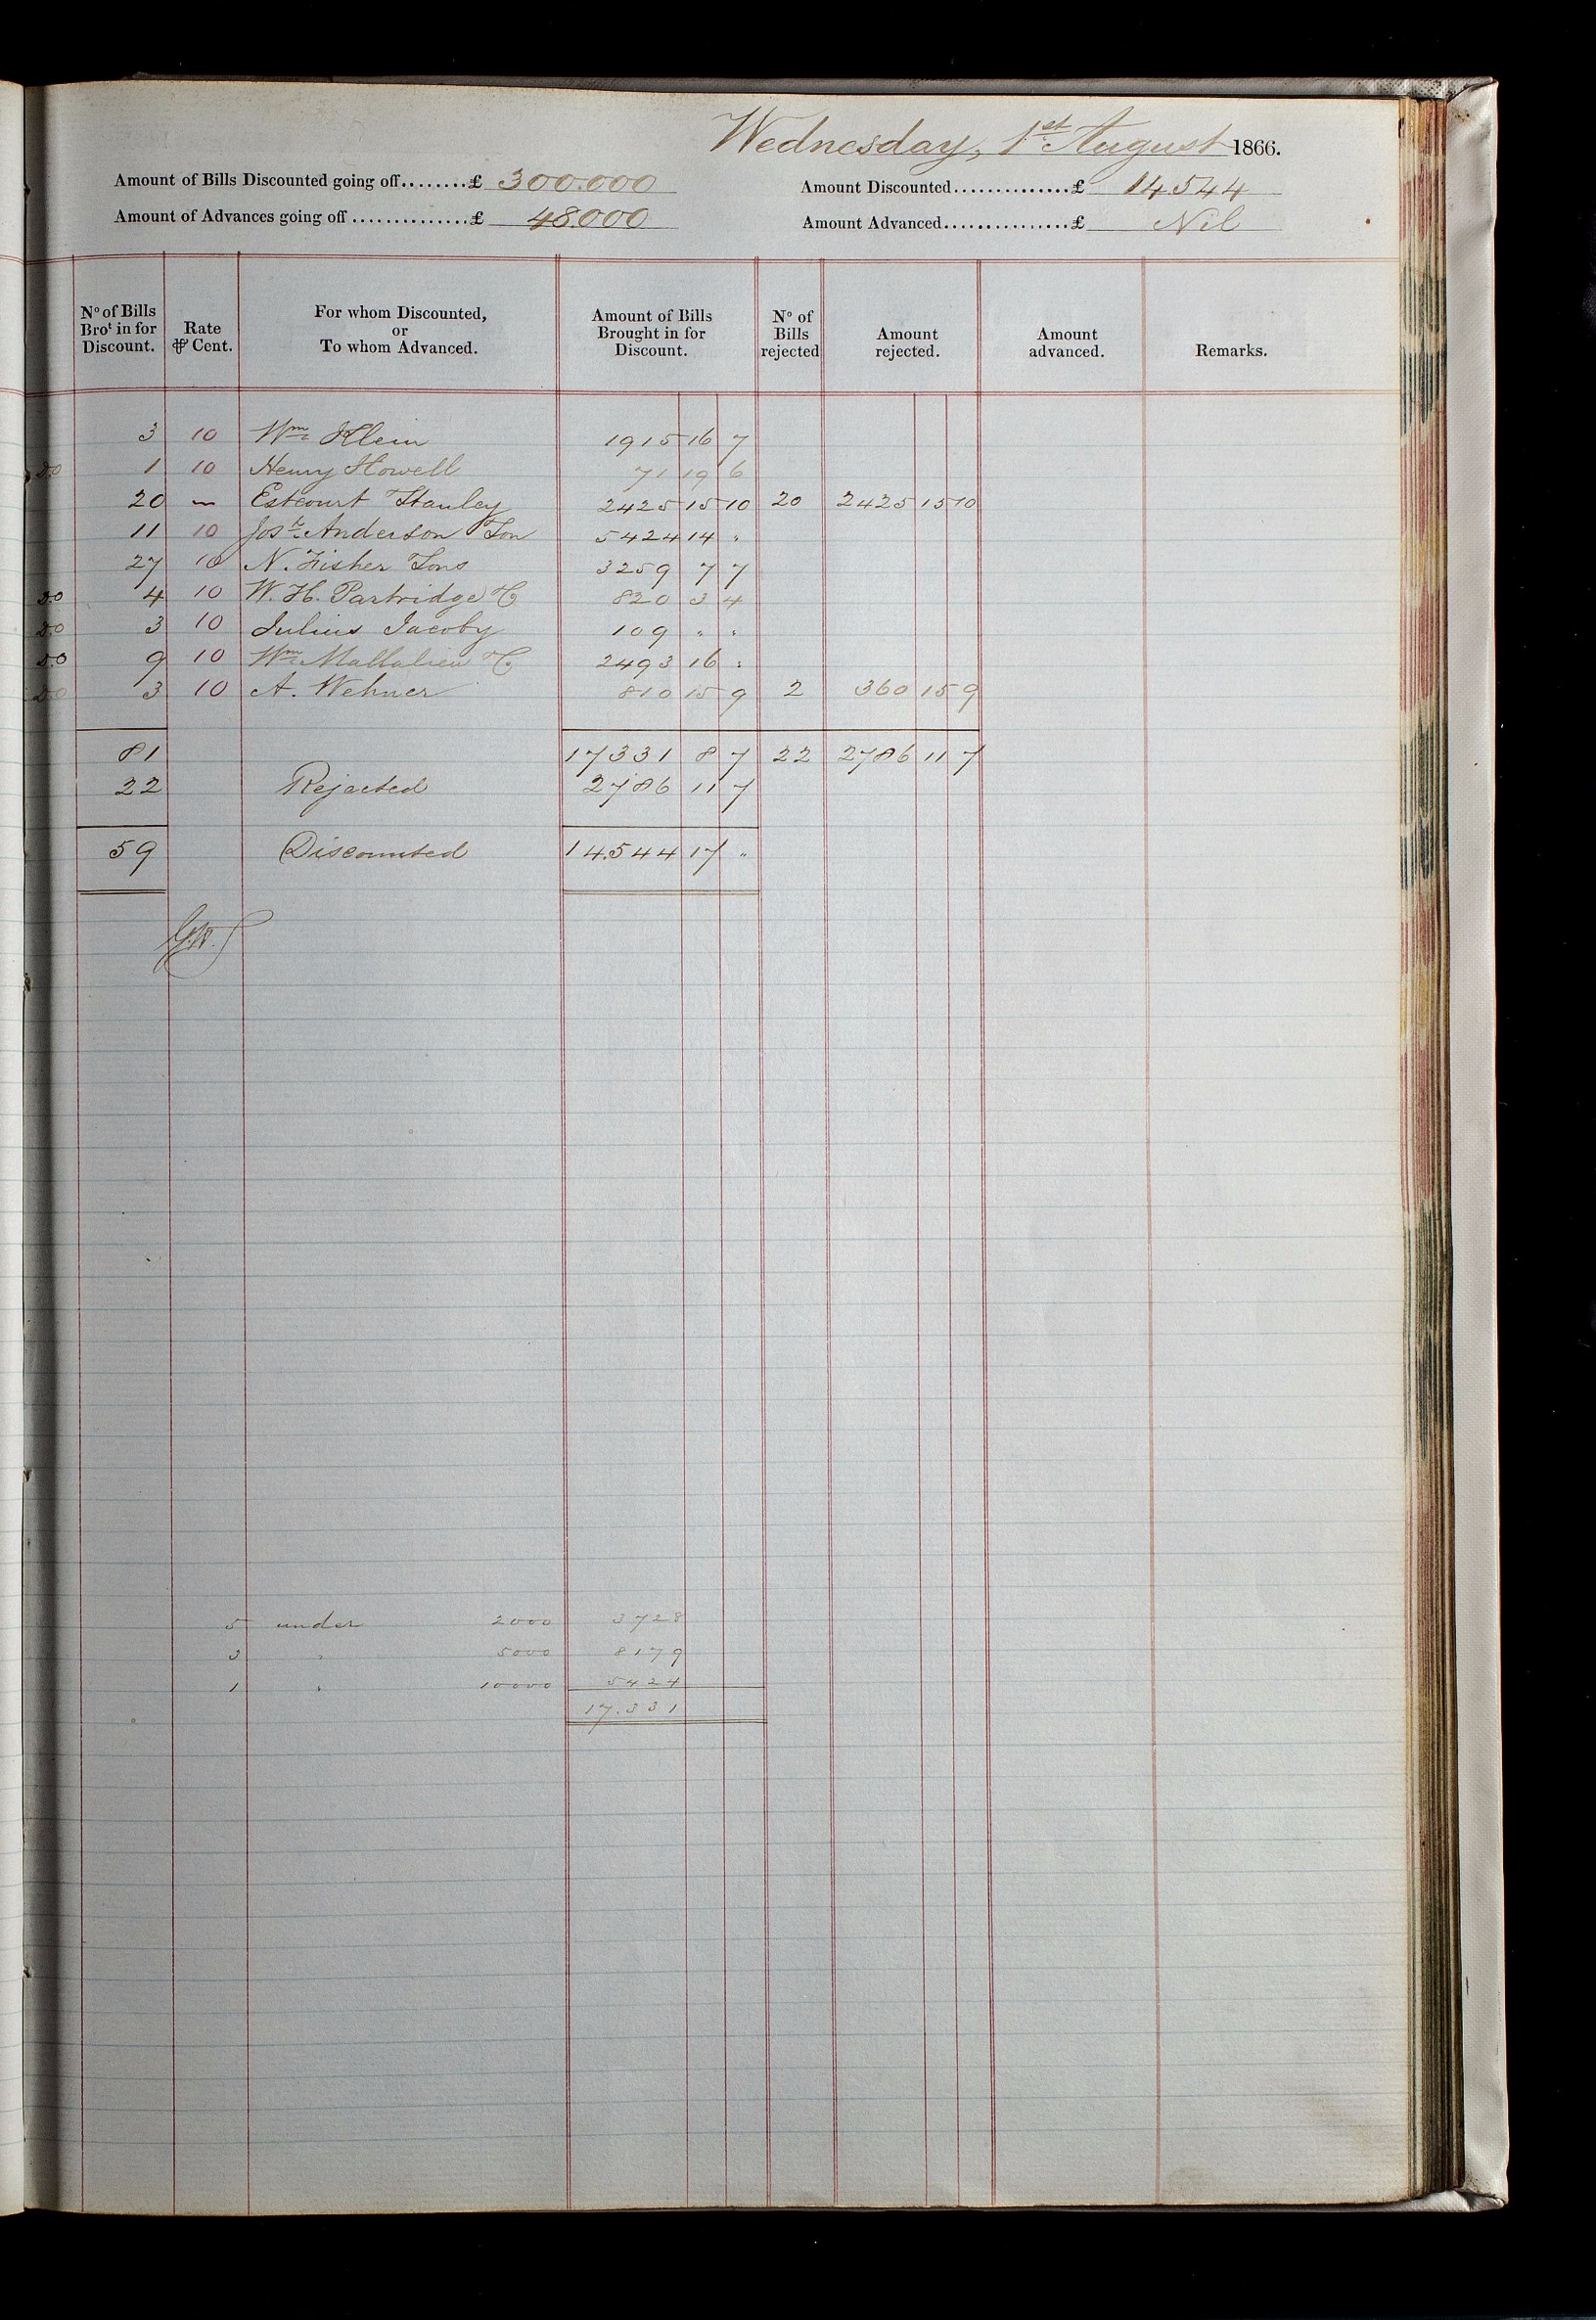 Wednesday, 1st August 1866.
Amount of Bills Discounted going off........£ 300.000
Amount Discounted..............£ 14544
Amount of Advances going off..............£ 48.000
Amount Advanced...............£ Nil
No of Bills Brot in for Discount. Rate ⅌ Cent. For whom Discounted, or To whom Advanced. Amount of Bills Brought in for Discount. No of Bills rejected Amount rejected. Amount advanced. Remarks.
3 10 Wm Klein 1915 16 7
Do 1 10 Henry Howell 71 19 6
20 ~ Estcourt Stanley 2425 15 10 20 2425 15 10
11 10 Josh Anderson Son 5424 14 "
27 10 N. Fisher Sons 3259 7 7
Do 4 10 W. H. Partridge & Co 820 3 4
Do 3 10 Julius Jacoby 109 " "
Do 9 10 Wm Mallalieu & Co 2493 16 "
Do 3 10 A. Wehner 810 15 9 2 360 15 9
81 17331 8 7 22 2786 11 7
22 Rejected 2786 11 7
59 Discounted 14.544 17 "
5 under 2000 3728
3 " 5000 8179
1 " 10000 5424
17.331